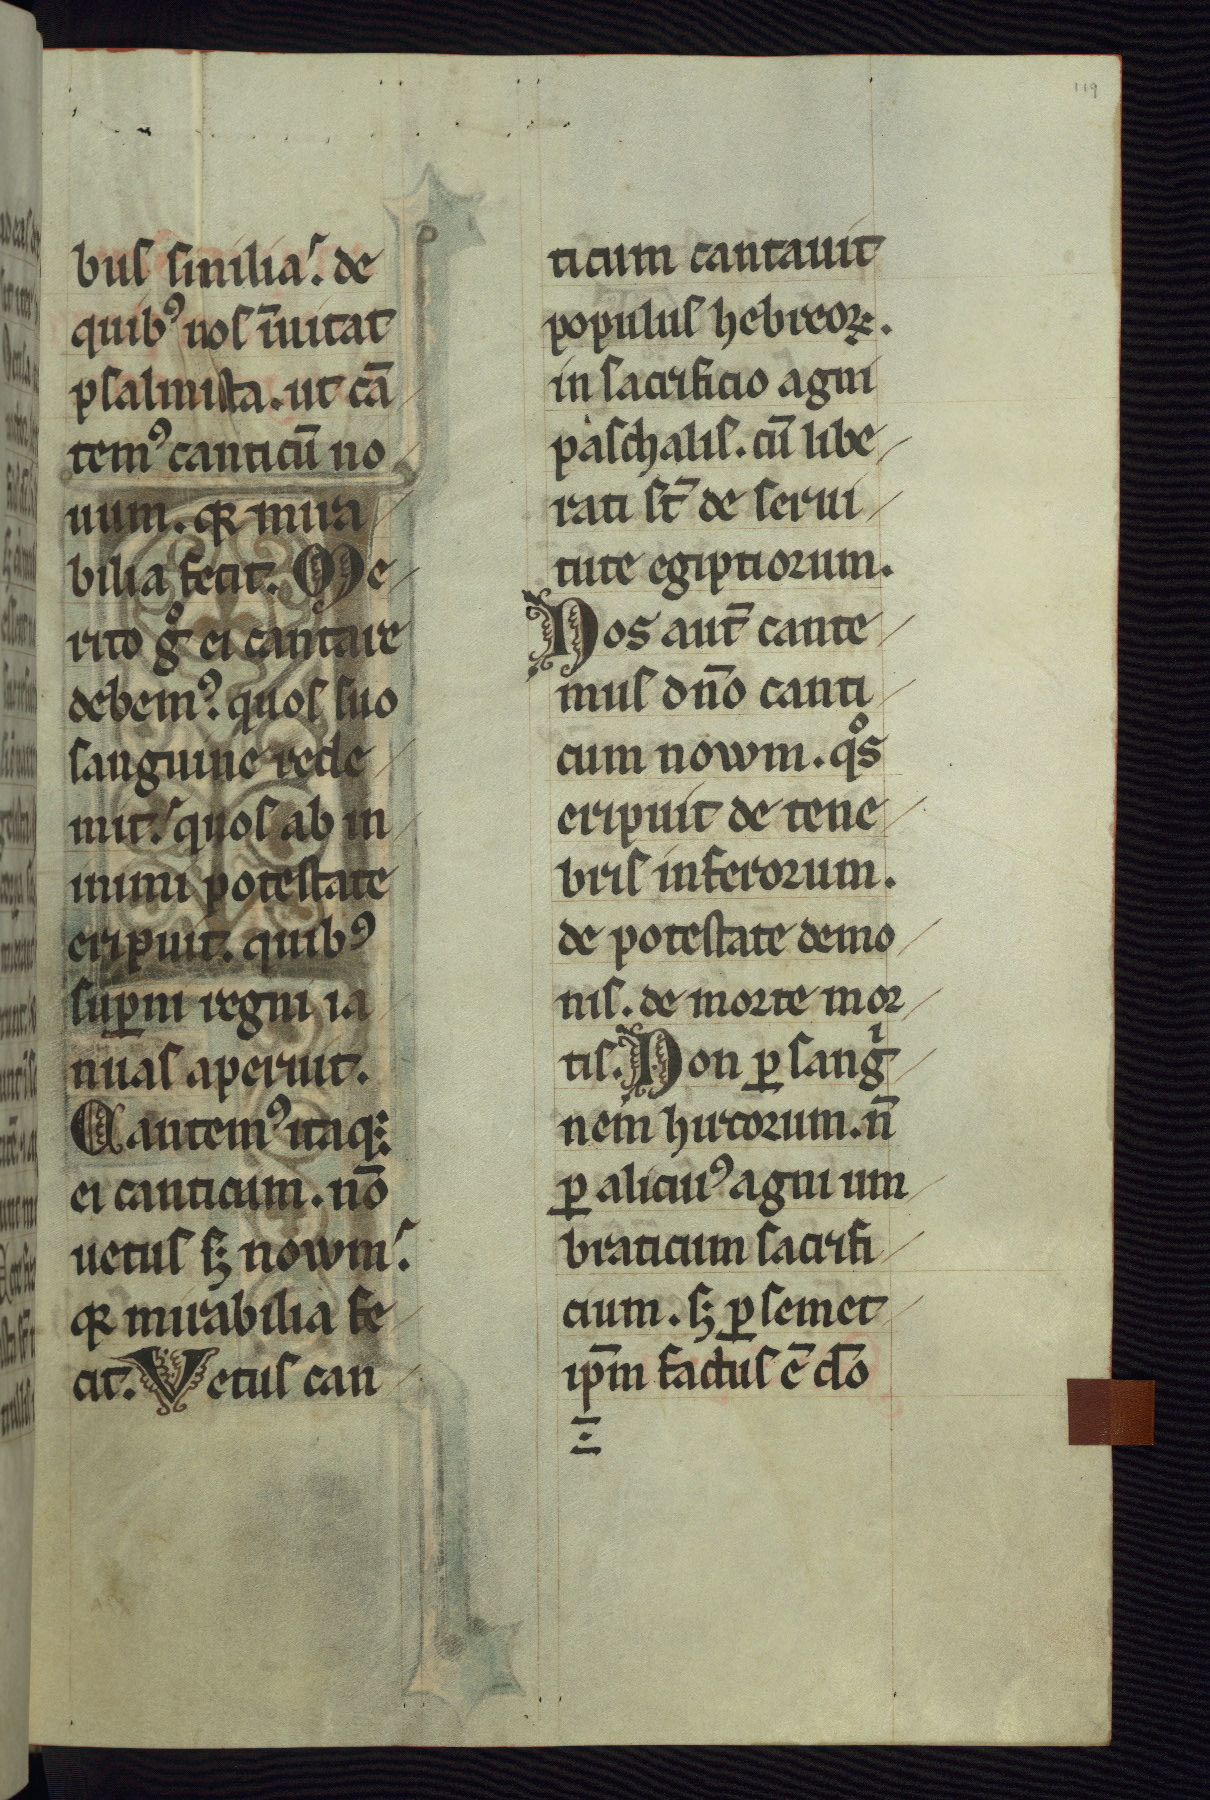 119
bus similia. de
quibꝰ nos īuitat
psalmista. ut cā
temꝰ canticū no
uum. qꝛ mira
bilia fecit. Me
rito gͦ ei cantare
debemꝰ. quos suo
sanguine rede
mit. quos ab in
inimi potestate
eripuit. quibꝰ
suꝑni regni ia
nuas aperuit.
Cantemꝰ itaqꝫ
ei canticum. nō
uetus sꝫ nowm.
qꝛ mirabilia fe
cit. Vetus can
ticum cantauit
populus hebreoꝝ.
in sacrificio agni
paschalis. cū libe
rati st̄ de serui
tute egiptiorum.
Nos aut̄ cante
mus dn̄o canti
cum nowm. qͦs
eripuit de tene
bris inferorum.
de potestate demo
nis. de morte mor
tis. Non ꝑ sangͥ
nem hircorum. n̄
ꝑ alicuiꝰ agni um
braticum sacrifi
cium. sꝫ ꝑ semet
ip̄m factus ē dō